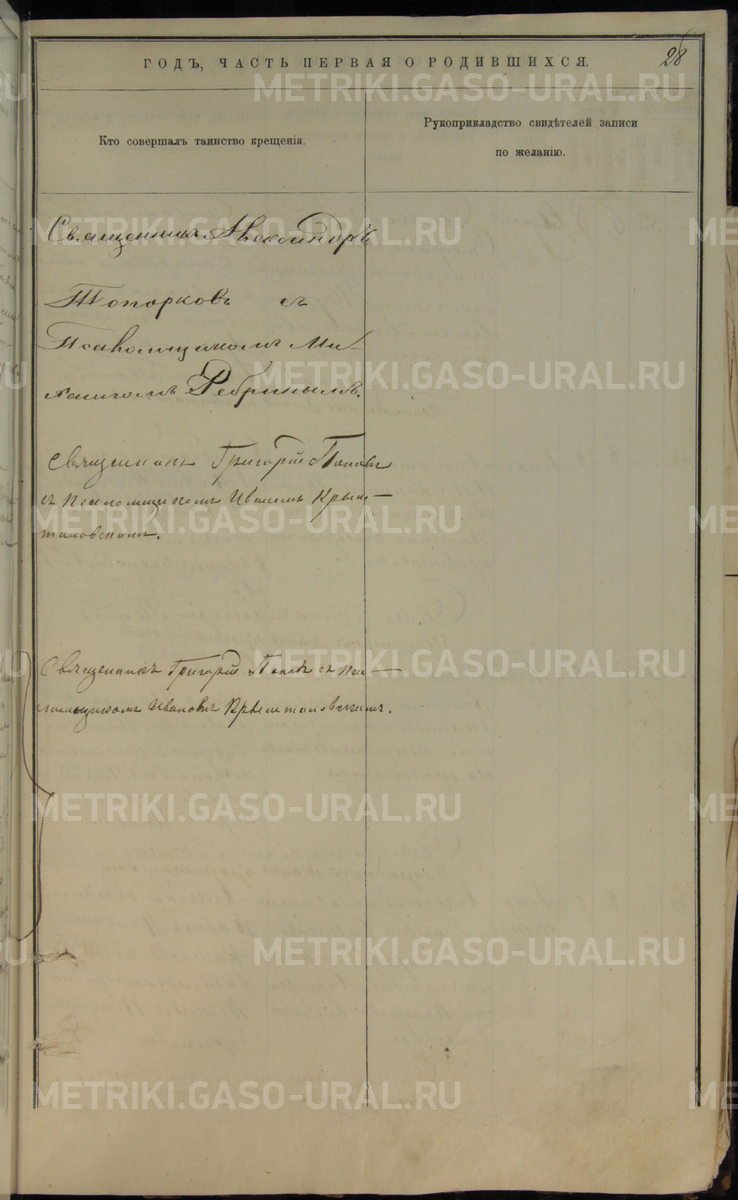 ГОДЪ, ЧАСТЬ ПЕРВАЯ О РОДИВШИХСЯ.
28
Кто совершалъ таинство крещенія.
Рукоприкладство свидѣтелей записи
по желанію.
Священникъ Александоръ
Топорковъ съ
Псаломщикомъ Ми-
хаиломъ Ребринымъ.
Священникъ Григорій Поповъ
съ Псаломщикомъ Иваномъ Крыш-
таловскимъ.
Священникъ Григорій Поповъ съ Пса-
ломщикомъ Крышталовскимъ.
METRIKI.GASO-URAL.RU